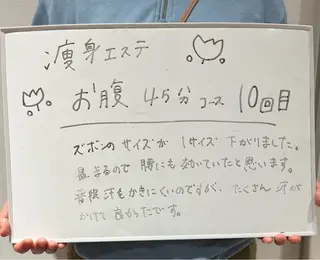 痩身エステ
お腹 45分コース 10回目
ズボンのサイズが 1サイズ 下がりました。
温まるので 腰にも効いていたと思います。
普段 汗もかきにくいのですが、たくさん 汗が
かけて 良かったです。